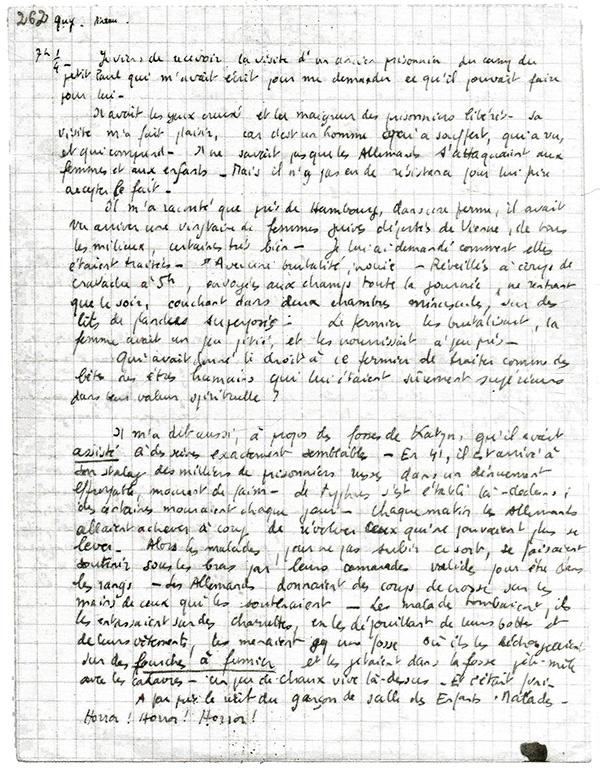 262
7h 1/4 – Je viens de recevoir la visite d'un ancien prisonnier du camp du
petit Paul qui m'avait écrit pour me demander ce qu'il pouvait faire
pour lui –
Il avait les yeux creux et la maigreur des prisonniers libérés – sa
visite m'a fait plaisir, car c'est un homme qui a souffert, qui a vu,
et qui comprend – Il ne savait pas que les Allemands s'attaquaient aux
femmes et aux enfants – Mais il n'y a pas eu de résistance pour lui faire
accepter le fait –
Il m'a raconté que près de Hambourg, dans une ferme, il avait
vu arriver une vingtaine de femmes juives déportées de Vienne, de tous
les milieux, certaines très bien – Je lui ai demandé comment elles
étaient traitées – "Avec une brutalité inouïe – Réveillées à coups de
cravache à 5h, envoyées aux champs toute la journée, ne rentrant
que le soir, couchant dans deux chambres minuscules, sur des
lits de planches superposés : Le fermier les brutalisait, la
femme avait un peu pitié, et les nourrissait à peu près –
Qui avait donné le droit à ce fermier de traiter comme des
bêtes des êtres humains qui lui étaient sûrement supérieurs
dans leur valeur spirituelle ?
Il m'a dit aussi, à propos des fosses de Katyn, qu'il avait
assisté à des scènes exactement semblables – En 41, il est arrivé à
son stalag des milliers de prisonniers russes dans un dénuement
effroyable, mourant de faim – Le typhus s'est établi là-dedans ;
des centaines mouraient chaque jour – Chaque matin les Allemands
allaient achever à coup de révolver ceux qui ne pouvaient plus se
lever – Alors les malades, pour ne pas subir ce sort, se faisaient
soutenir sous les bras par leurs camarades valides pour être dans
les rangs – Les Allemands donnaient des coups de crosse sur les
mains de ceux qui les soutenaient – Les malades tombaient, ils
les entassaient sur des charrettes, en les dépouillant de leurs bottes et
de leurs vêtements, les menaient à une fosse où ils les déchargeaient
sur des fourches à fumier et les jetaient dans la fosse pêle-mêle
avec les cadavres – un peu de chaux vive là-dessus – Et c'était fini –
A par le récit du garçon de salle des Enfants-Malades –
Horror ! Horror ! Horror !